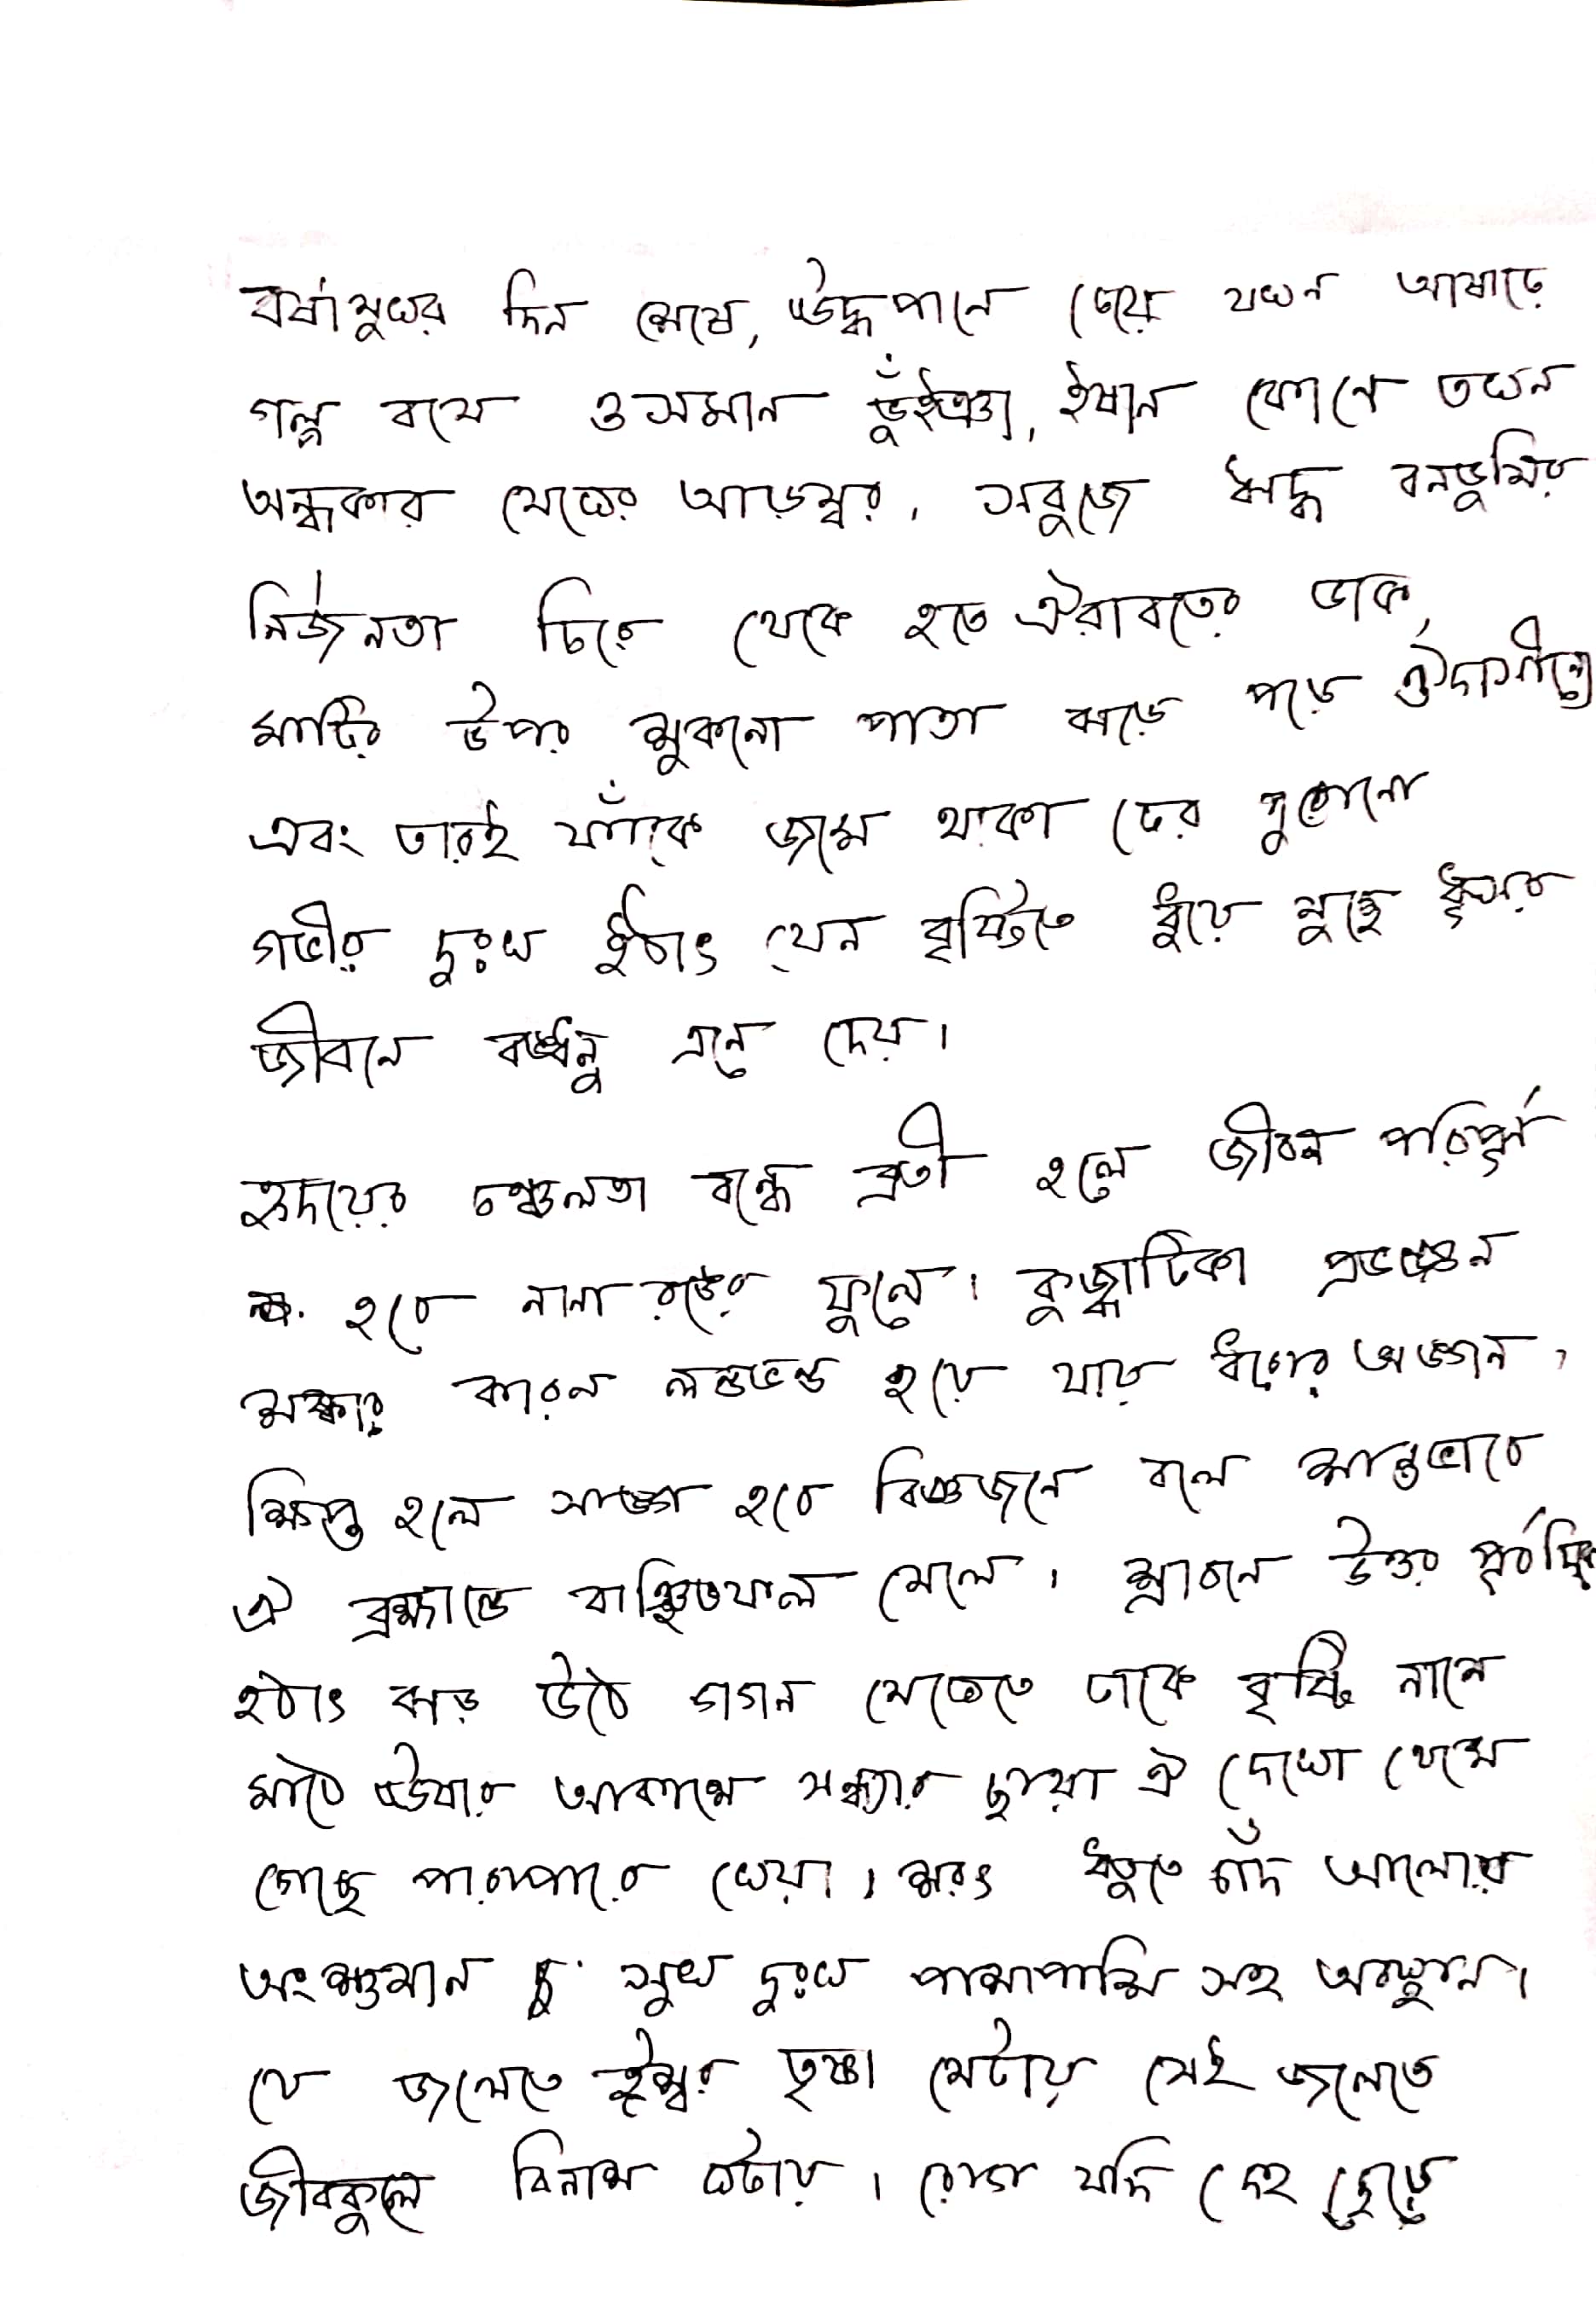 বর্ষামুখর দিন শেষে, উর্দ্ধপানে চেয়ে যখন আষাঢ়ে
গল্প বলে ওসমান ভুঁইঞা, ঈষান কোণে তখন
অন্ধকার মেঘের আড়ম্বর, সবুজে ঋদ্ধ বনভূমির
নির্জনতা চিরে থেকে হতে ঐরাবতের ডাক,
মাটির উপর শুকনো পাতা ঝড়ে পড়ে ঔদাসীন্যে
এবং তারই ফাঁকে জমে থাকা ঢের পুরোনো
গভীর দুঃখ হঠাৎ যেন বৃষ্টিতে ধুয়ে মুছে ধূসর
জীবনে রঙধনু এনে দেয়।
হৃদয়ের চঞ্চলতা বন্ধে ব্রতী হলে জীবন পরিপূর্ণ
হবে নানা রঙের ফুলে। কুজ্ঝটিকা প্রভঞ্জন
শঙ্কার কারণে লন্ডভন্ড হয়ে যায় ধরার অঙ্গন,
ক্ষিপ্ত হলে সাঙ্গ হবে বিজ্ঞজনে বলে শান্তভাবে
এ ব্রহ্মান্ডে বাঞ্ছিতফল মেলে। শ্রাবনে উত্তর পূর্বদিকে
হঠাৎ ঝড় উঠে গগন মেঘেতে ঢাকে বৃষ্টি নামে
মাঠে ঊষার আকাশে সন্ধ্যার ছায়া ঐ দেখো থেমে
গেছে পারাপারে খেয়া। শরৎ ঋতুতে চাঁদ আলোয়
অংশুমান সুখ দুঃখ পাশাপাশি সহ অবস্থান।
যে জলেতে ঈশ্বর তৃষ্ণা মেটায় সেই জলেতে
জীবকুলে বিনাশ ঘটায়। রোগ যদি দেহ ছেড়ে